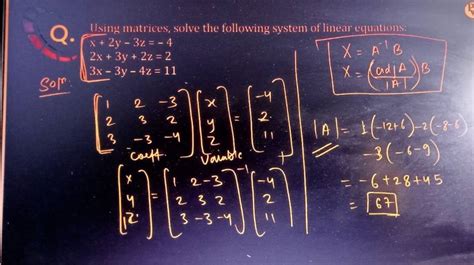 Q. Using matrices, solve the following system of linear equations:
x + 2y – 3z = – 4
2x + 3y + 2z = 2
3x – 3y – 4z = 11
Soln.
[1 2 -3
2 3 2
3 -3 -4] [x
y
z] = [-4
2
11]
Coeff. Variable
[x
y
z] = [1 2 -3
2 3 2
3 -3 -4]⁻¹ [-4
2
11]
X = A⁻¹ B
X = (adj A / |A|) B
|A| = 1(-12+6) -2(-8-6)
-3(-6-9)
= -6+28+45
= 67